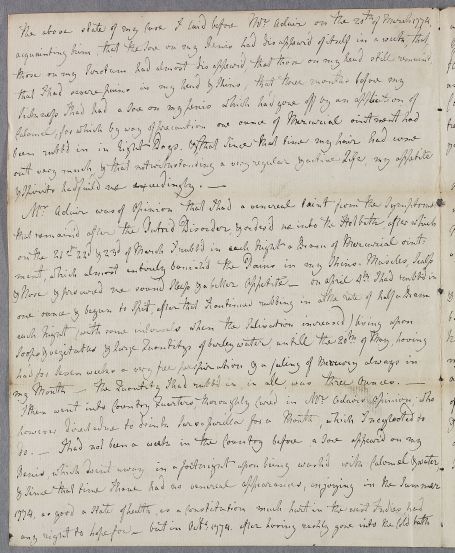 The above state of my Case I laid before Mr. Adair on the 20th of March 1774,
acquainting him that the sore on my Penis had disappeared of itself in a week, that
those on my Scrotum had almost disappeared that those on my head still remained
that I had severe pains in my head & Shins, that three months before my
Sickness I had had a sore on my penis which had gone off by an application of
Calomel, for which by way of precaution one ounce of Mercurial ointment had
been rubb'd in in Eight Days. & that Since that time my hair had come
out very much & that notwithstanding a very regular & active Life, my appetite
& Spirits had fail'd me exceedingly. —
Mr. Adair was of Opinion that I had a venereal taint from the Symptoms
that remained after the Putrid Disorder & order'd me into the Hot bath, after which
on the 21st 22d & 23d of March I rubb'd in each Night a Dram of Mercurial oint
ment, which almost entirely banish'd the Pains in my Shins Muscles Scalp
& Nose & procured me sound Sleep & a better Appetite — on April 4th I had rubb'd in
one ounce & began to Spit, after that I continued rubbing in at the rate of half a Dram
each Night, with some intervals when the Salivation increased, living upon
Soops & vegetables & large Quantitys of barley water, untill the 20th of May, having
had for seven weeks a very free perspiration & a feeling of Mercury always in
my Mouth — the Quantity I had rubb'd in in all was three Ounces. —
I then went into Country Quarters thoroughly cured in Mr. Adair's Opinion, who
however directed me to drink Sarsaparilla for a Month, which I neglected to
do. — I had not been a week in the Country before a sore appear'd on my
Penis which went away in a fortnight upon being wash'd with Calomel & water
& Since that time I have had no venereal appearances, enjoying in the Summer
1774, as good a State of health, as a constitution much hurt in the west Indies had
any right to hope for — but in Octr. 1774. after having rashly gone into the Cold bath